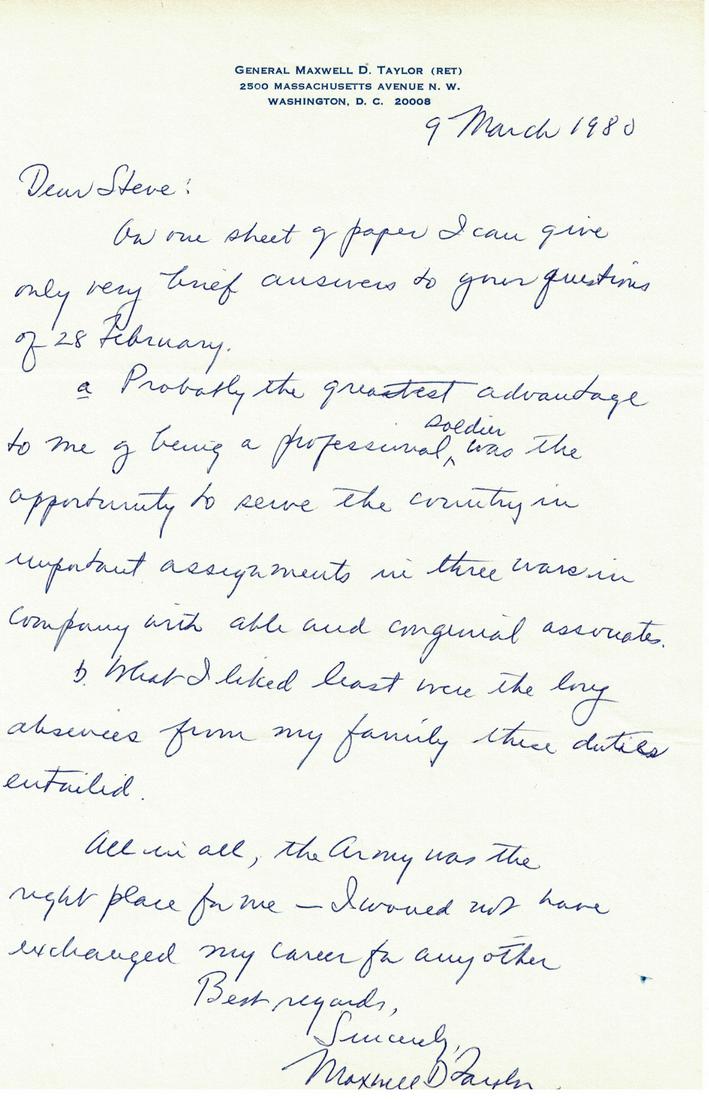 GENERAL MAXWELL D. TAYLOR (RET)
2500 MASSACHUSETTS AVENUE N. W.
WASHINGTON, D. C. 20008
9 March 1980
Dear Steve:
On one sheet of paper I can give
only very brief answers to your questions
of 28 February.
a Probably the greatest advantage
soldier
to me of being a professional, ^ was the
opportunity to serve the country in
important assignments in three wars in
company with able and congenial associates.
b. What I liked least were the long
absences from my family these duties
entailed.
All in all, the Army was the
right place for me — I would not have
exchanged my career for any other
Best regards,
Sincerely,
Maxwell D Taylor